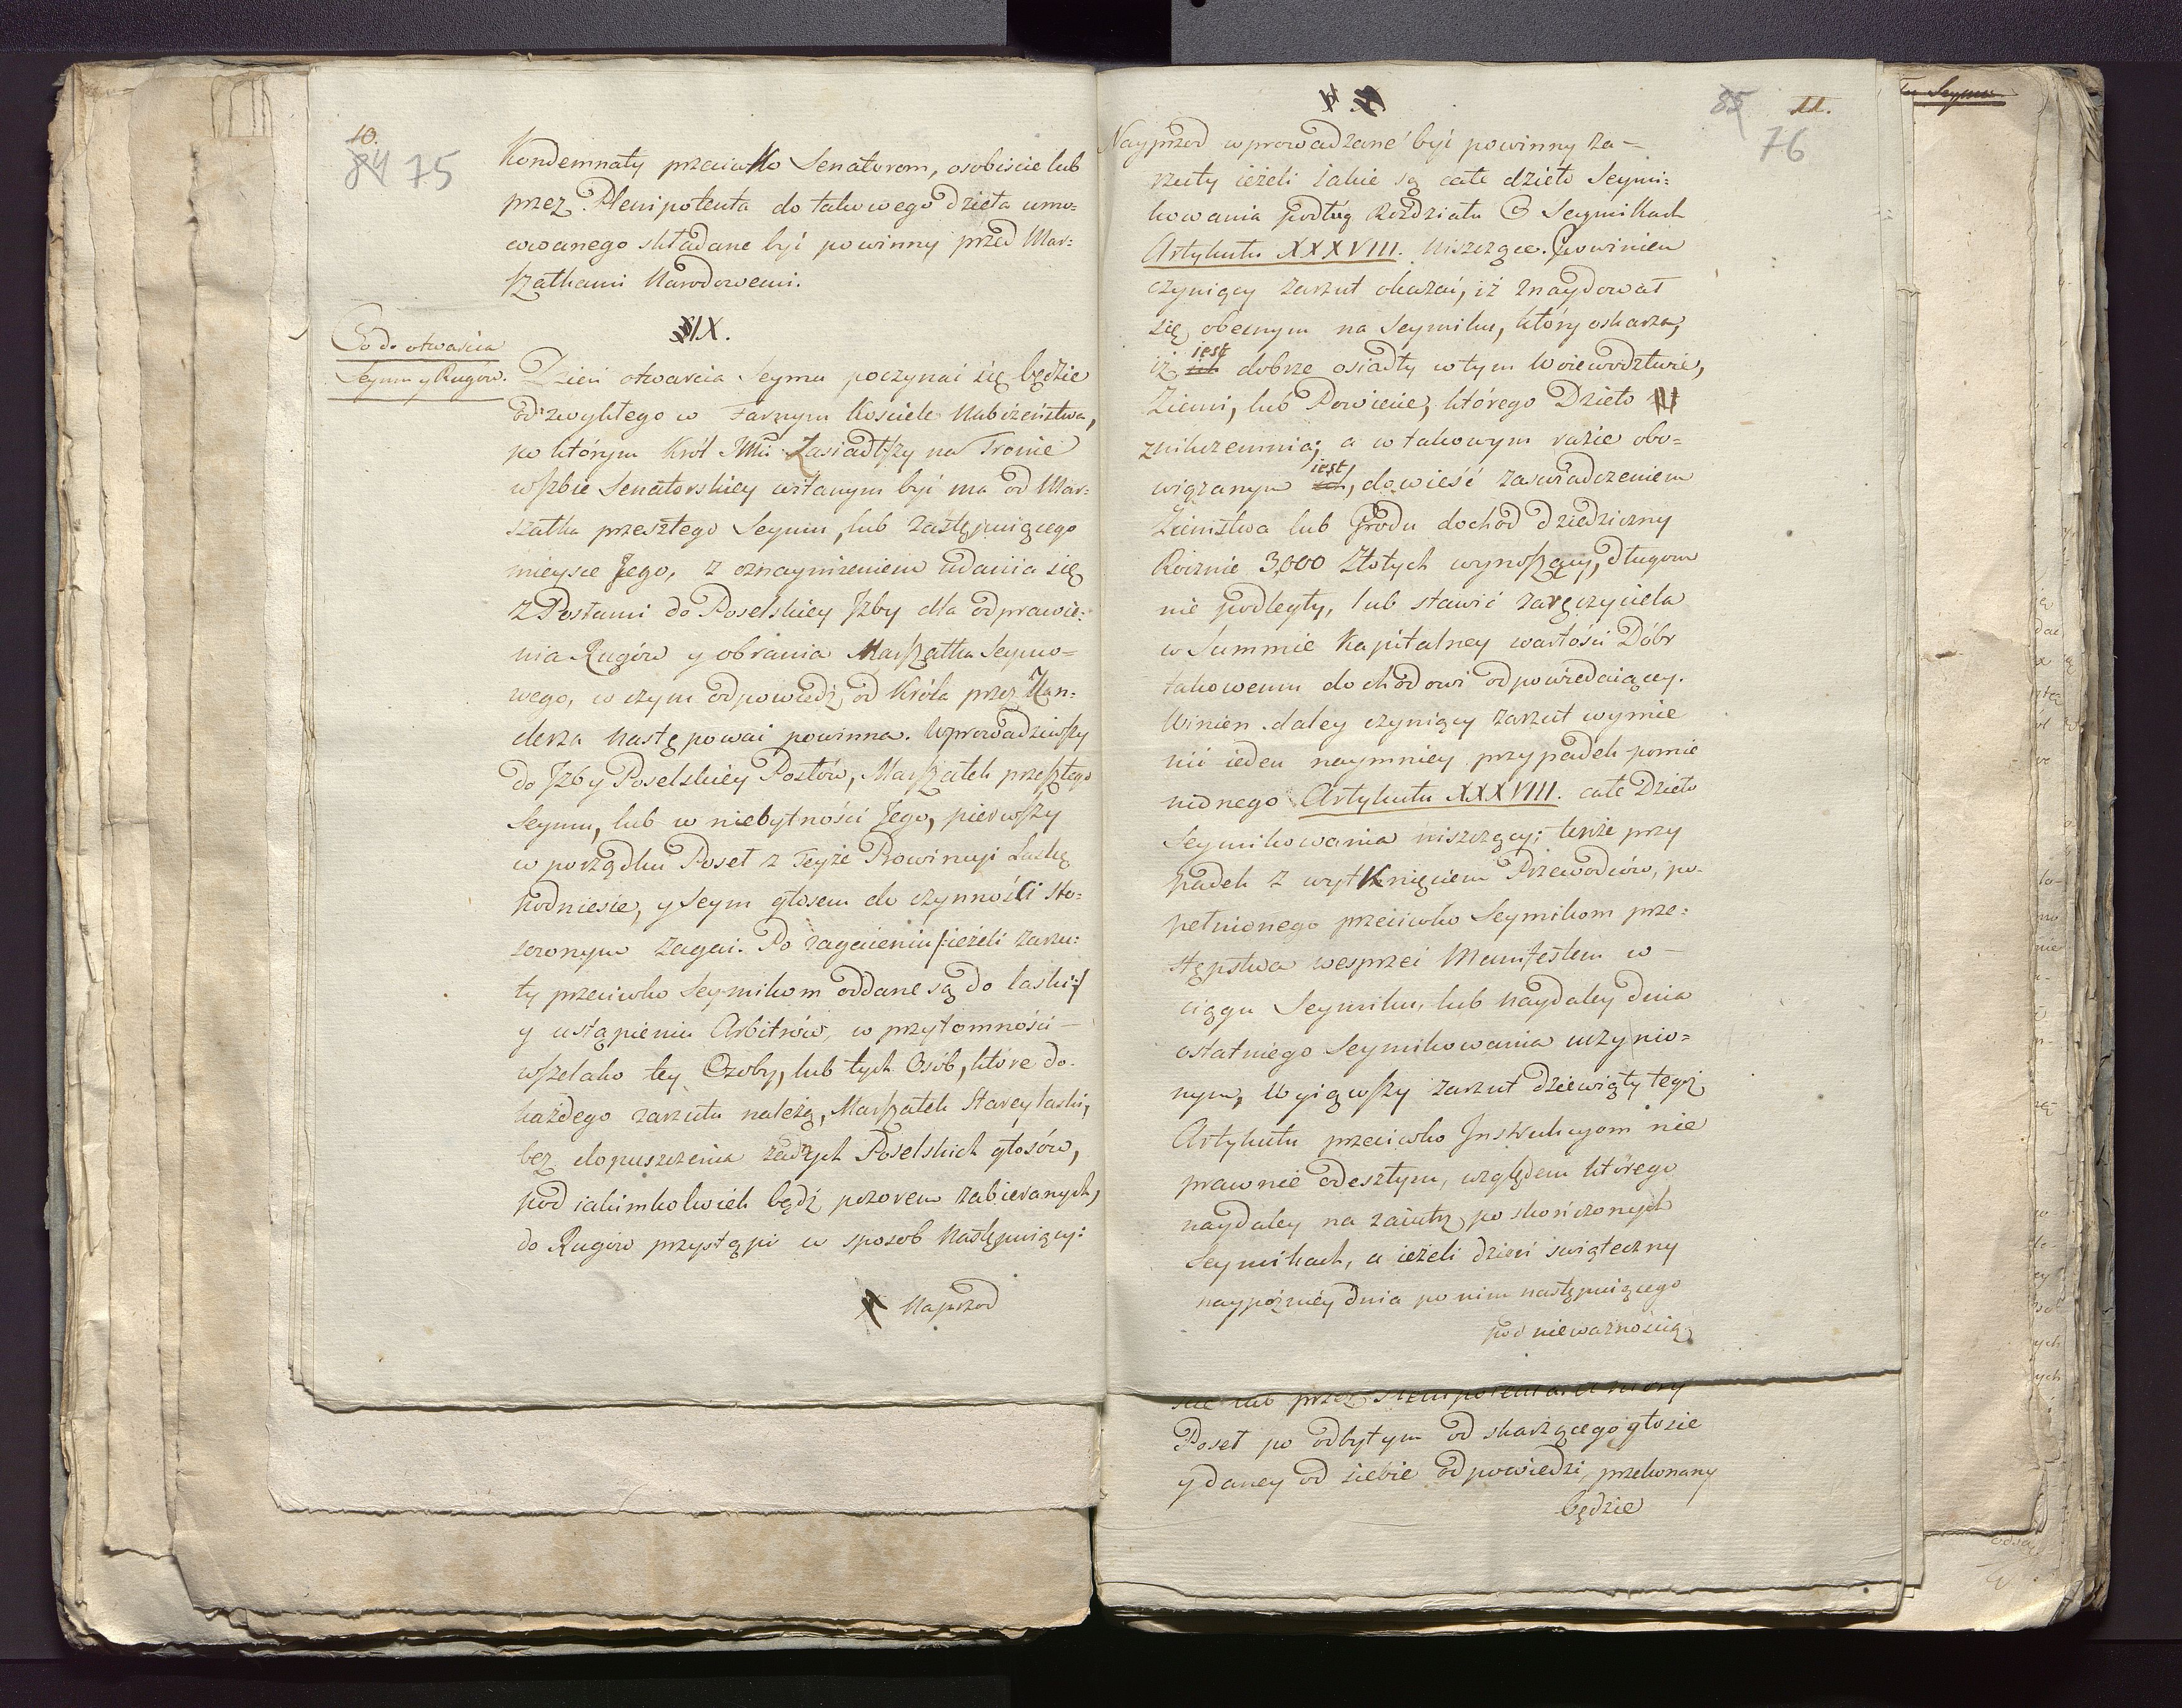 10.
84 75
Kondemnaty przeciwko Senatorom, osobiście lub
przez Plenipotenta do takowego dzieła umo=
cowanego składane być powinny przed Mar=
szałkami Narodowemi.
IX.
Co do otwarcia
Seymu y Rugow.
Dzień otwarcia Seymu poczynać się będzie
od zwykłego w Farnym Kościele Nabożeństwa,
po którym Król JMć Zasiadłszy na Tronie
w Izbie Senatorskiey witanym być ma od Mar=
szałka przeszłego Seymu, lub zastępuiącego
mieysce Jego, z oznaymieniem udania się
z Posłami do Poselskiey Izby dla odprawie=
nia Rugów y obrania Marszałka Seymo=
wego, w czym odpowiedź od Króla przez Kan=
clerza następować powinna. Wprowadziwszy
do Izby Poselskiey Posłów, Marszałek przeszłego
Seymu, lub w niebytności Jego, pierwszy
w porządku Poseł z Teyże Prowincyi Laskę
podniesie, y Seym głosem do czynności sto=
sownym zagai. Po zagaieniu /:ieżeli zarzu=
ty przeciwko Seymikom oddane są do laski:/
y ustąpieniu Arbitrów, w przytomności —
wszelako tey Osoby, lub tych Osób, które do
każdego zarzutu należą, Marszałek Starey laski,
bez dopuszczenia żadnych Poselskich głosów,
pod iakimkolwiek bądź pozorem zabieranych,
do Rugów przystąpi w sposob następuiący:
Naprzod
85 11.
76
Nayprzod wprowadzane być powinny za—
rzuty ieżeli iakie są całe dzieło Seymi=
kowania podług Rozdziału O Seymikach
Artykułu XXXVIII. niszczące. Powinien
czyniący zarzut okazać, iż znaydował
się obecnym na Seymiku, który oskarża,
iż iest dobrze osiadły w tym Woiewodztwie,
Ziemi, lub Powiecie, którego Dzieło
znikczemnia; a w takowym razie obo=
wiązanym iest, dowieść zaświadczeniem
Ziemstwa lub Grodu dochód dziedziczny
Rocznie 3,000 Złotych wynoszący, długom
nie podległy, lub stawić zaręczyciela
w Summie Kapitalney wartości Dóbr
takowemu dochodowi odpowiedaiącey.
Winien daley czyniący zarzut wymie
nić ieden naymniey przypadek pomie
nionego Artykułu XXXVIII. całe Dzieło
Seymikowania niszczący; tenże przy
padek z wytknięciem Przewodców, po=
pełnionego przeciwko Seymikom prze=
stępstwa wesprzeć Manifestem w —
ciągu Seymiku, lub naydaley dnia
ostatniego Seymikowania uczynio=
nym, Wyiąwszy zarzut dziewiąty tegoż
Artykułu przeciwko Instrukcyom nie
prawnie odeszłym, względem którego
naydaley na zaiutrz po skończonych
Seymikach, a ieżeli dzień swiąteczny
naypóźniey dnia po nim następuiącego
pod nieważnością
Poseł po odbytym od skarżącego głosie
y daney od siebie odpowiedzi, przekonany
będzie